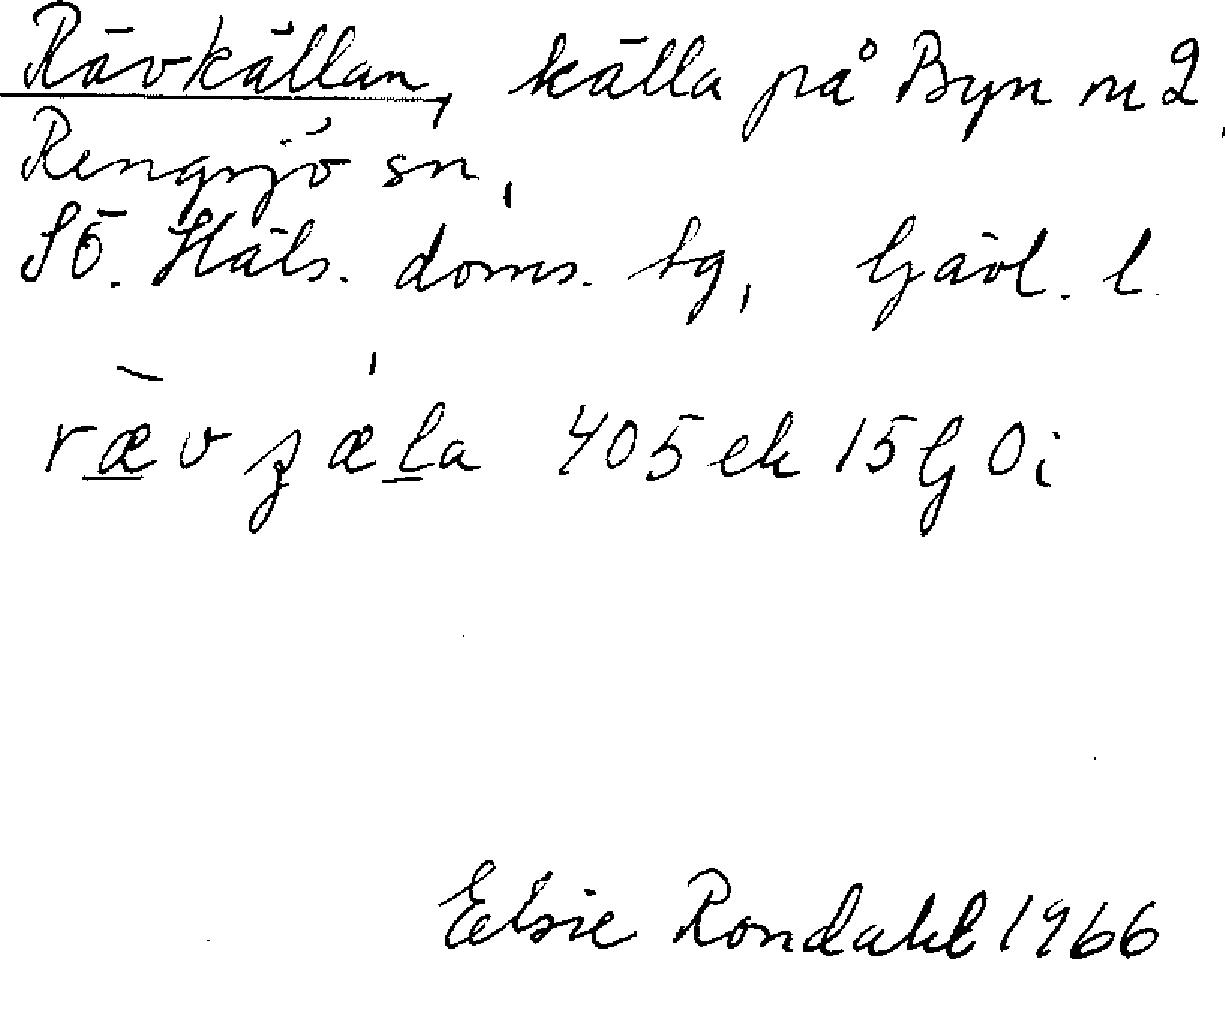 Rävkällan, källa på Byn nr 2,
Rengsjö sn,
SÖ. Häls. doms. tg, Gävl. l.
405 ek 15G0i
Elsie Rondahl 1966